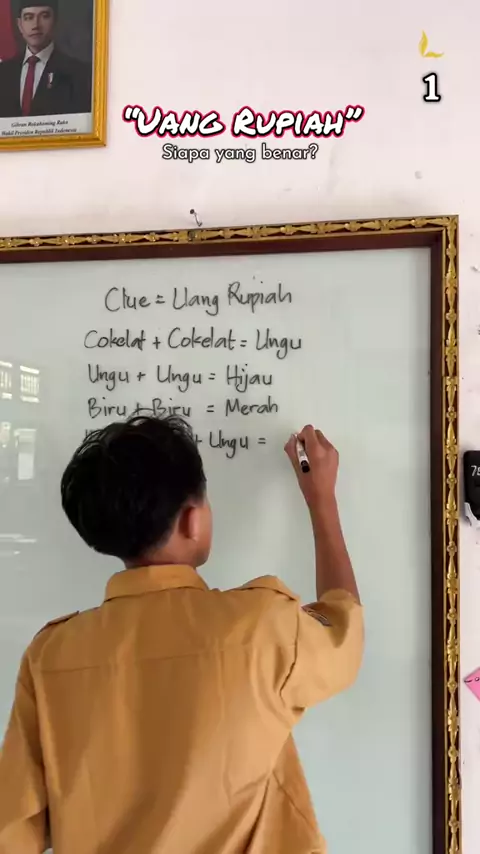 Gibran Rakabuming Raka
Wakil Presiden Republik Indonesia
1
“UANG RUPIAH”
Siapa yang benar?
Clue = Uang Rupiah
Cokelat + Cokelat = Ungu
Ungu + Ungu = Hijau
Biru + Biru = Merah
+ Ungu =